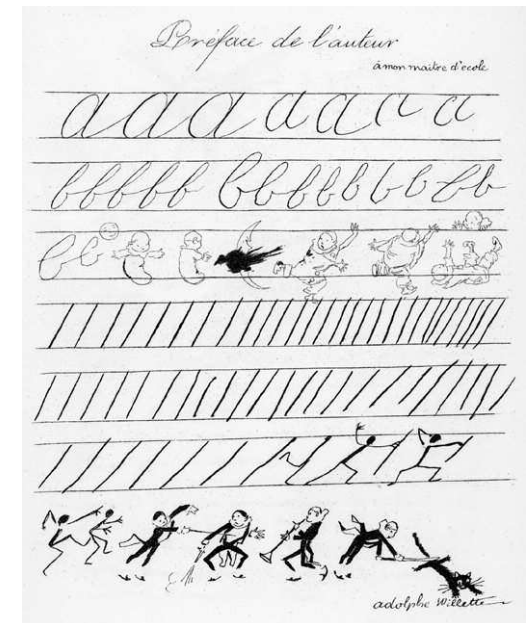 Préface de l'auteur
à mon maitre d'ecole
a a a a a a a
bbbbb bbbbb bb bb
b b
adolphe Willette